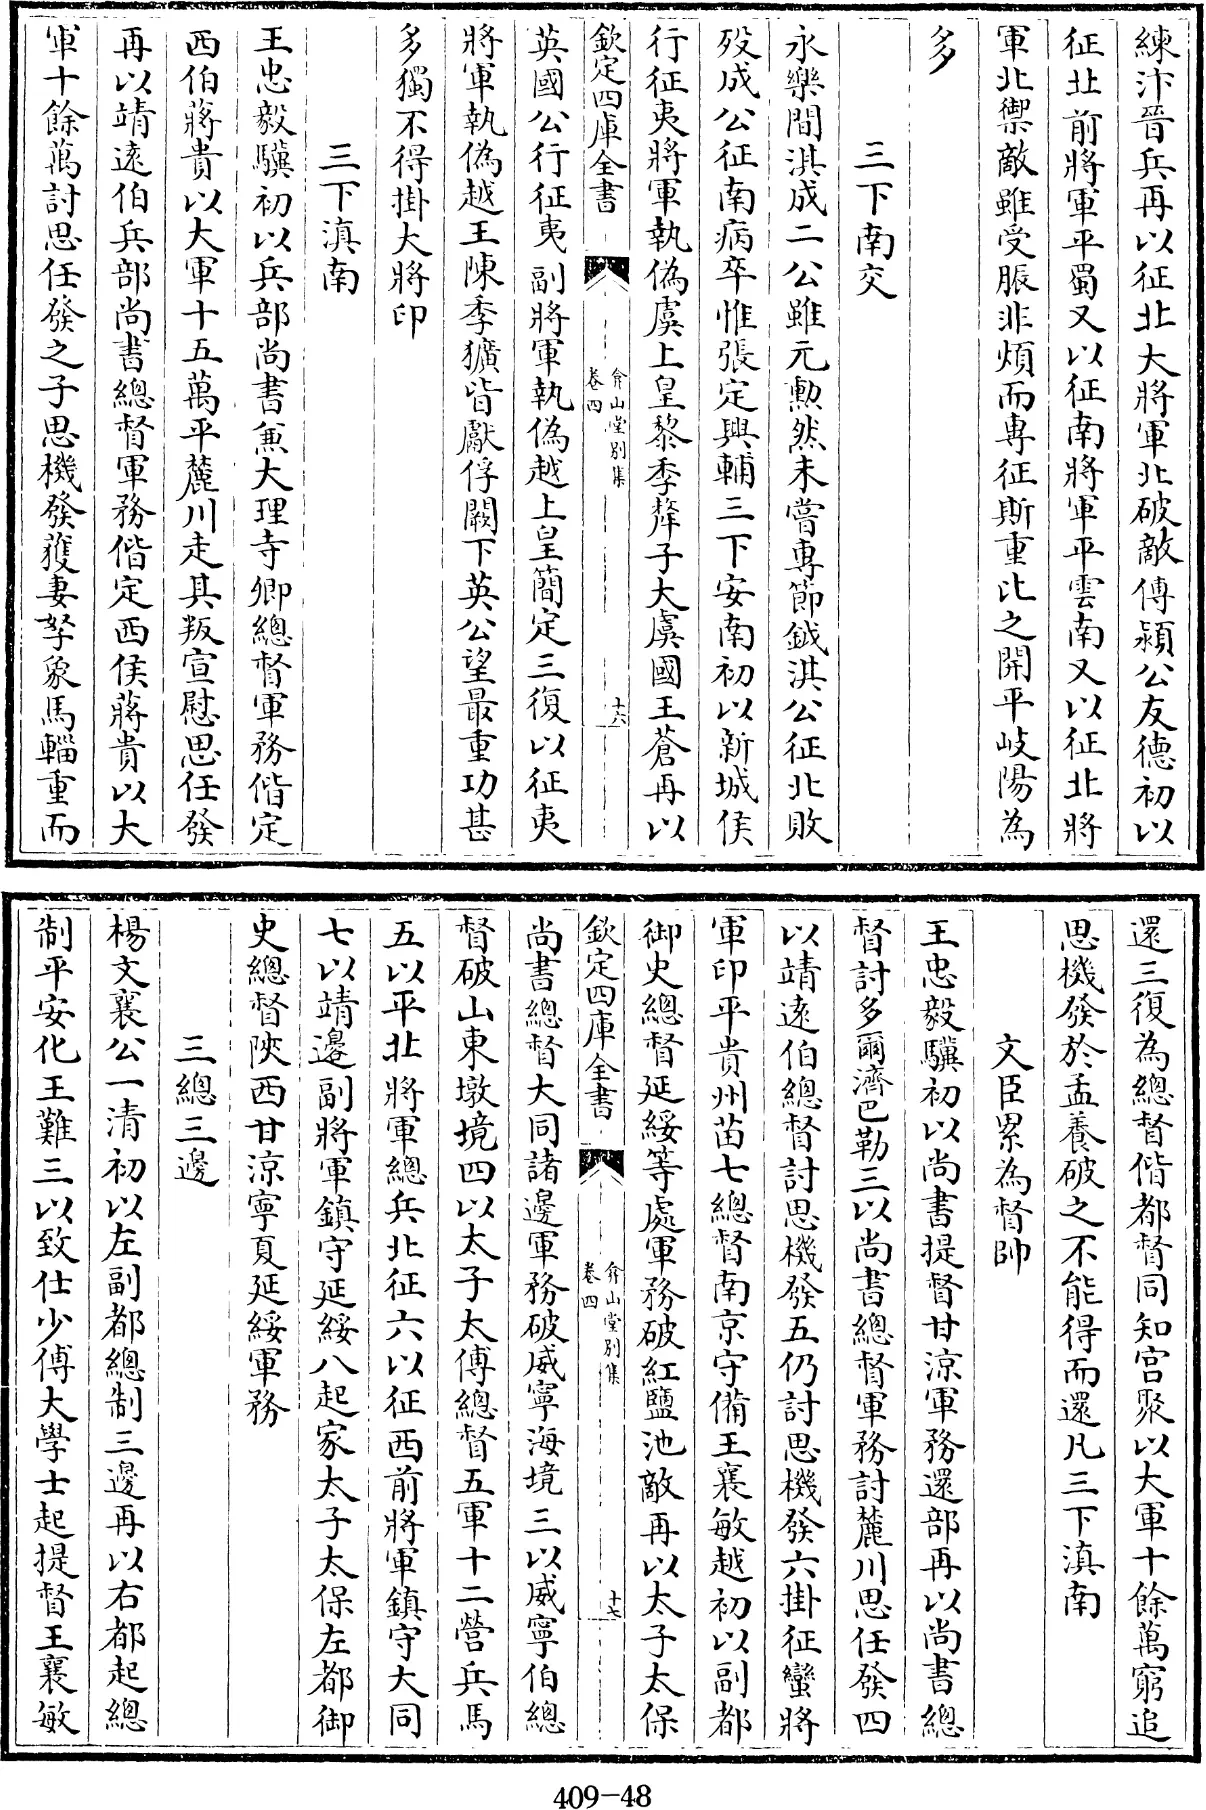 練汴晉兵再以征北大將軍北破敵傅潁公友德初以
征北前將軍平蜀又以征南將軍平雲南又以征北將
軍北禦敵雖受脤非煩而專征斯重比之開平岐陽為
多
三下南交
永樂間淇成二公雖元勲然未嘗專節鉞淇公征北敗
歿成公征南病卒惟張定興輔三下安南初以新城侯
行征夷將軍執偽虞上皇黎季犛子大虞國王蒼再以
欽定四庫全書
弇山堂別集
卷四
十六
英國公行征夷副將軍執偽越上皇簡定三復以征夷
將軍執偽越王陳季獷皆獻俘闕下英公望最重功甚
多獨不得掛大將印
三下滇南
王忠毅驥初以兵部尚書兼大理寺卿總督軍務偕定
西伯蔣貴以大軍十五萬平麓川走其叛宣慰思任發
再以靖逺伯兵部尚書總督軍務偕定西侯蔣貴以大
軍十餘萬討思任發之子思機發獲妻孥象馬輜重而
還三復為總督偕都督同知宫聚以大軍十餘萬窮追
思機發於孟養破之不能得而還凡三下滇南
文臣累為督帥
王忠毅驥初以尚書提督甘涼軍務還部再以尚書總
督討多爾濟巴勒三以尚書總督軍務討麓川思任發四
以靖逺伯總督討思機發五仍討思機發六掛征蠻將
軍印平貴州苗七總督南京守備王襄敏越初以副都
御史總督延綏等處軍務破紅鹽池敵再以太子太保
欽定四庫全書
弇山堂別集
卷四
十七
尚書總督大同諸邊軍務破威寧海境三以威寧伯總
督破山東墩境四以太子太傅總督五軍十二營兵馬
五以平北將軍總兵北征六以征西前將軍鎮守大同
七以靖邊副將軍鎮守延綏八起家太子太保左都御
史總督陜西甘涼寧夏延綏軍務
三總三邊
楊文襄公一清初以左副都總制三邊再以右都起總
制平安化王難三以致仕少傅大學士起提督王襄敏
409-48